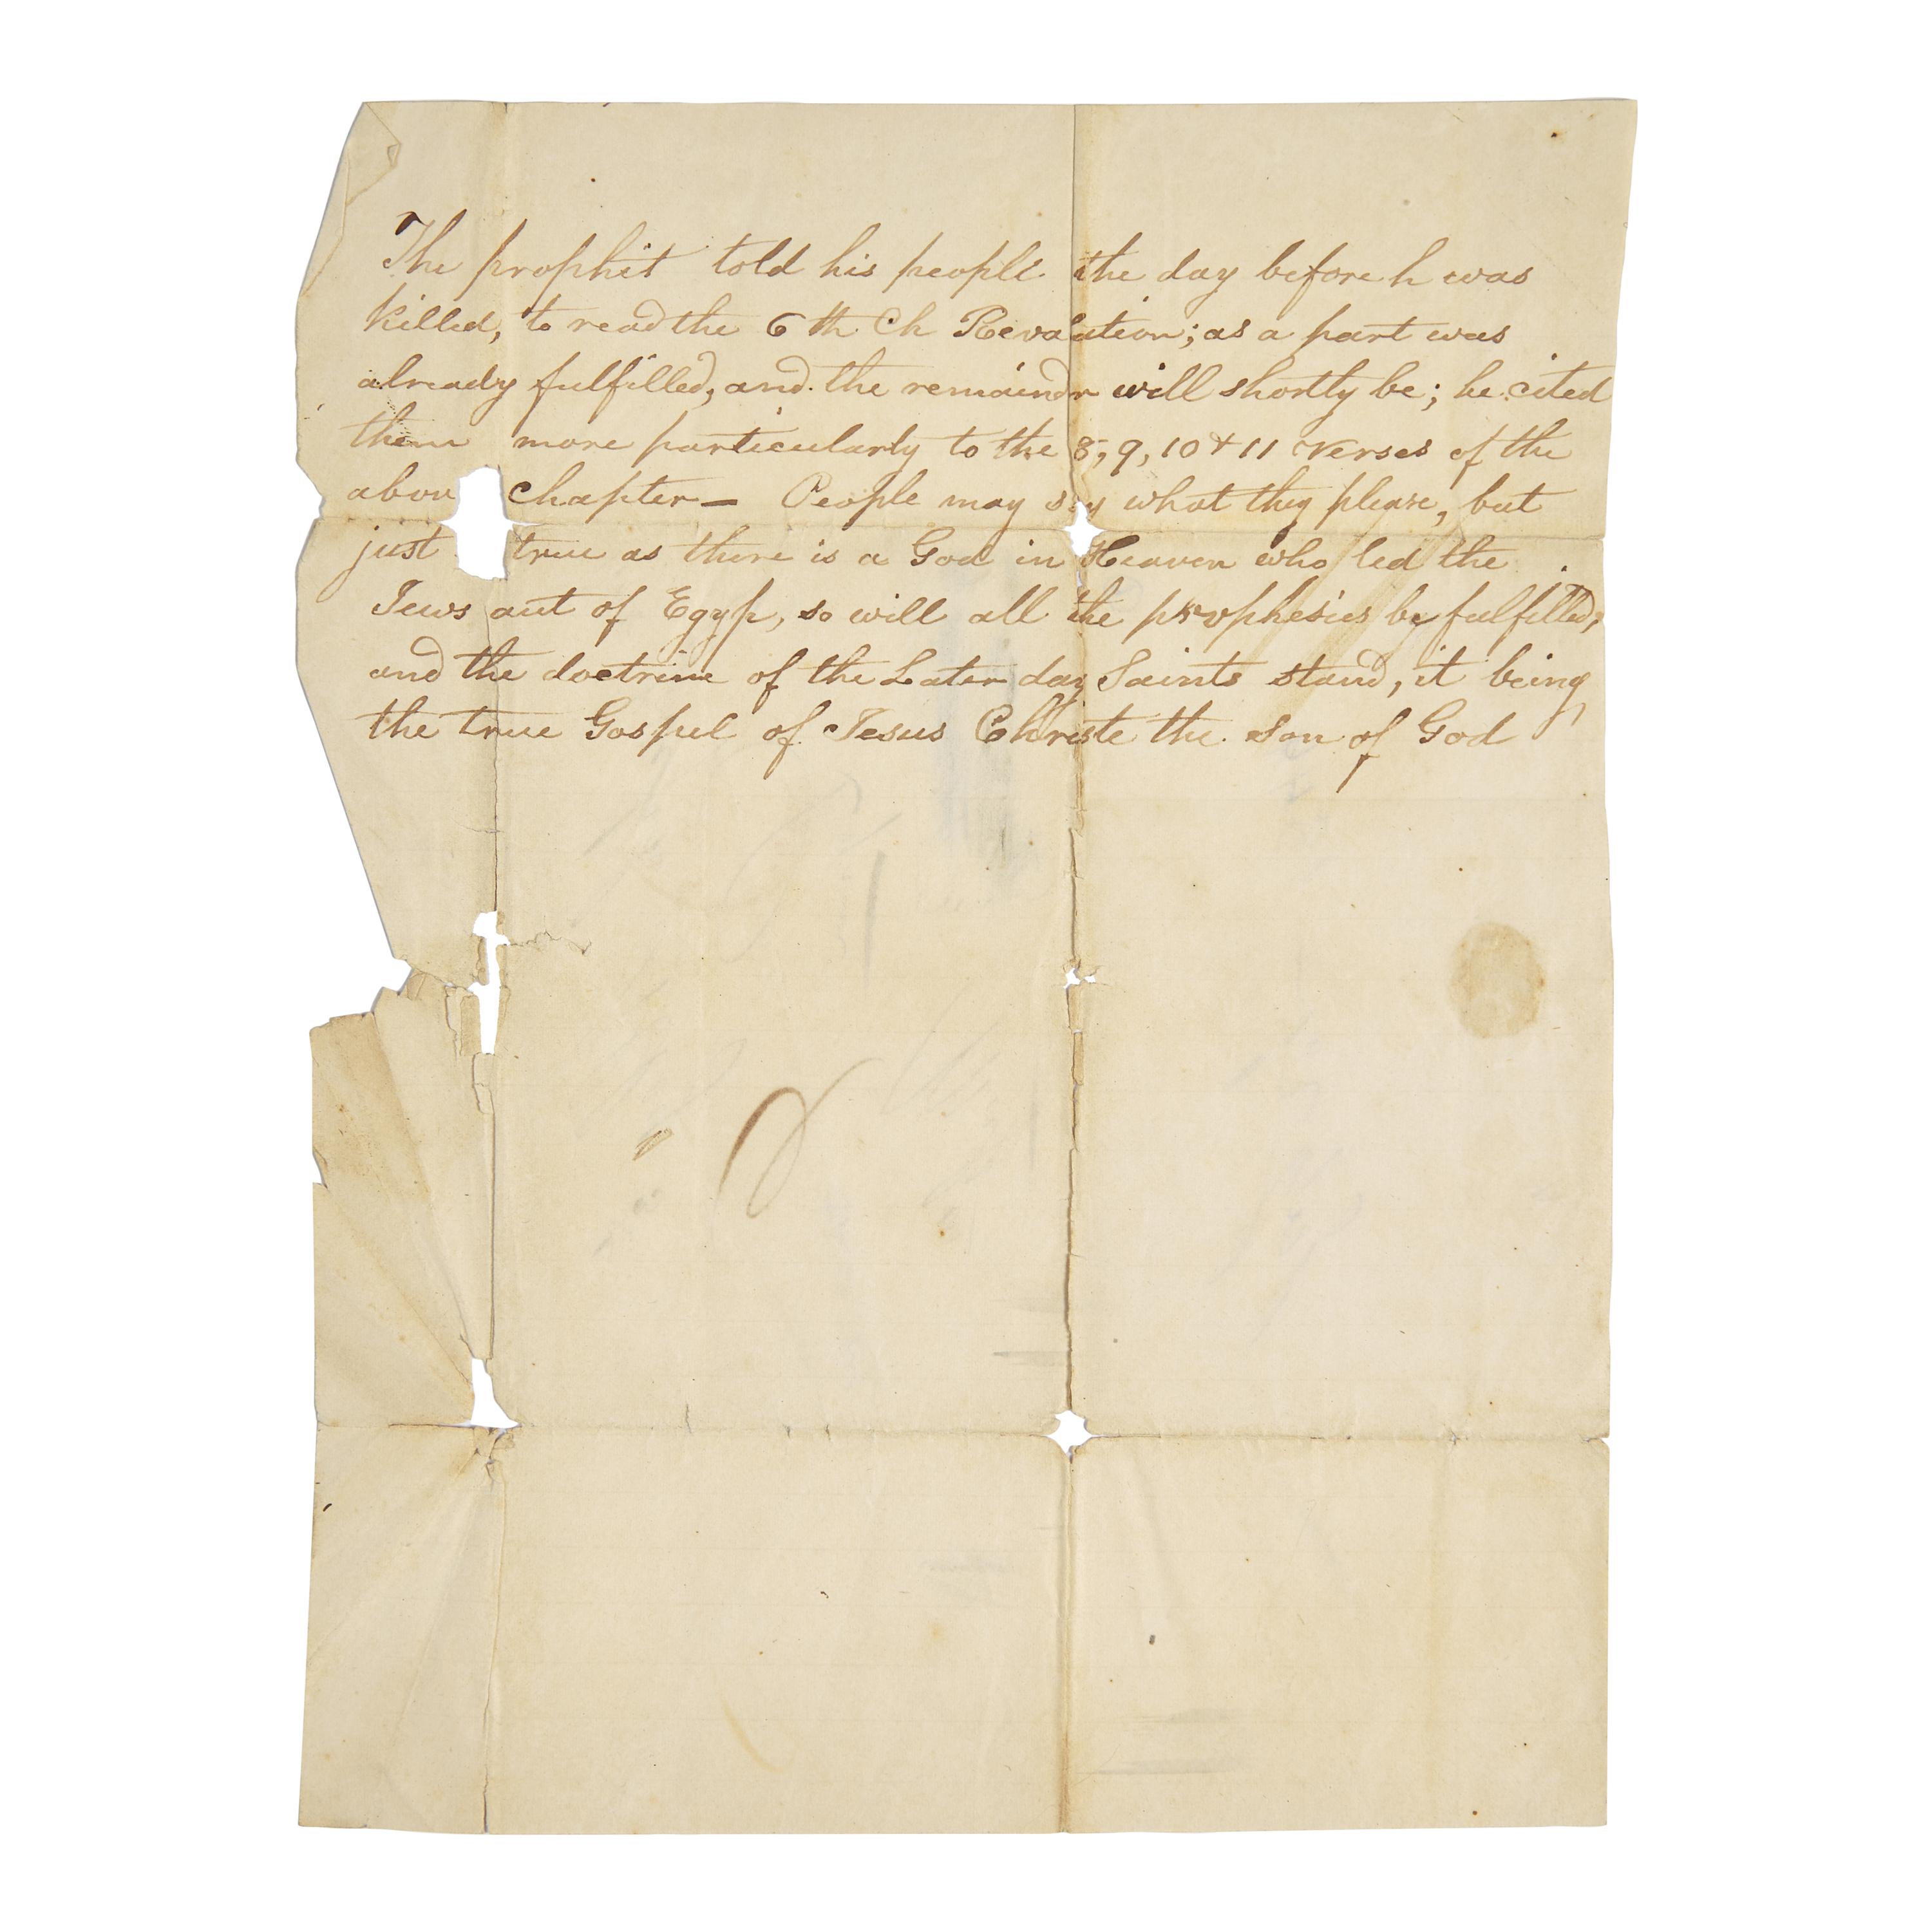 The prophit told his people the day before h was
killed, to read the 6th Ch Revalation; as a part was
already fulfilled, and the remaindr will shortly be; he cited
them more particularly to the 8, 9, 10 & 11 Verses of the
abov chapter — People may say what they please, but
just true as there is a God in Heaven who led the
Jews out of Egyp, so will all the prophesies be fulfilled,
and the doctrine of the Later day Saints stand, it being
the true Gospel of Jesus Christe the Son of God